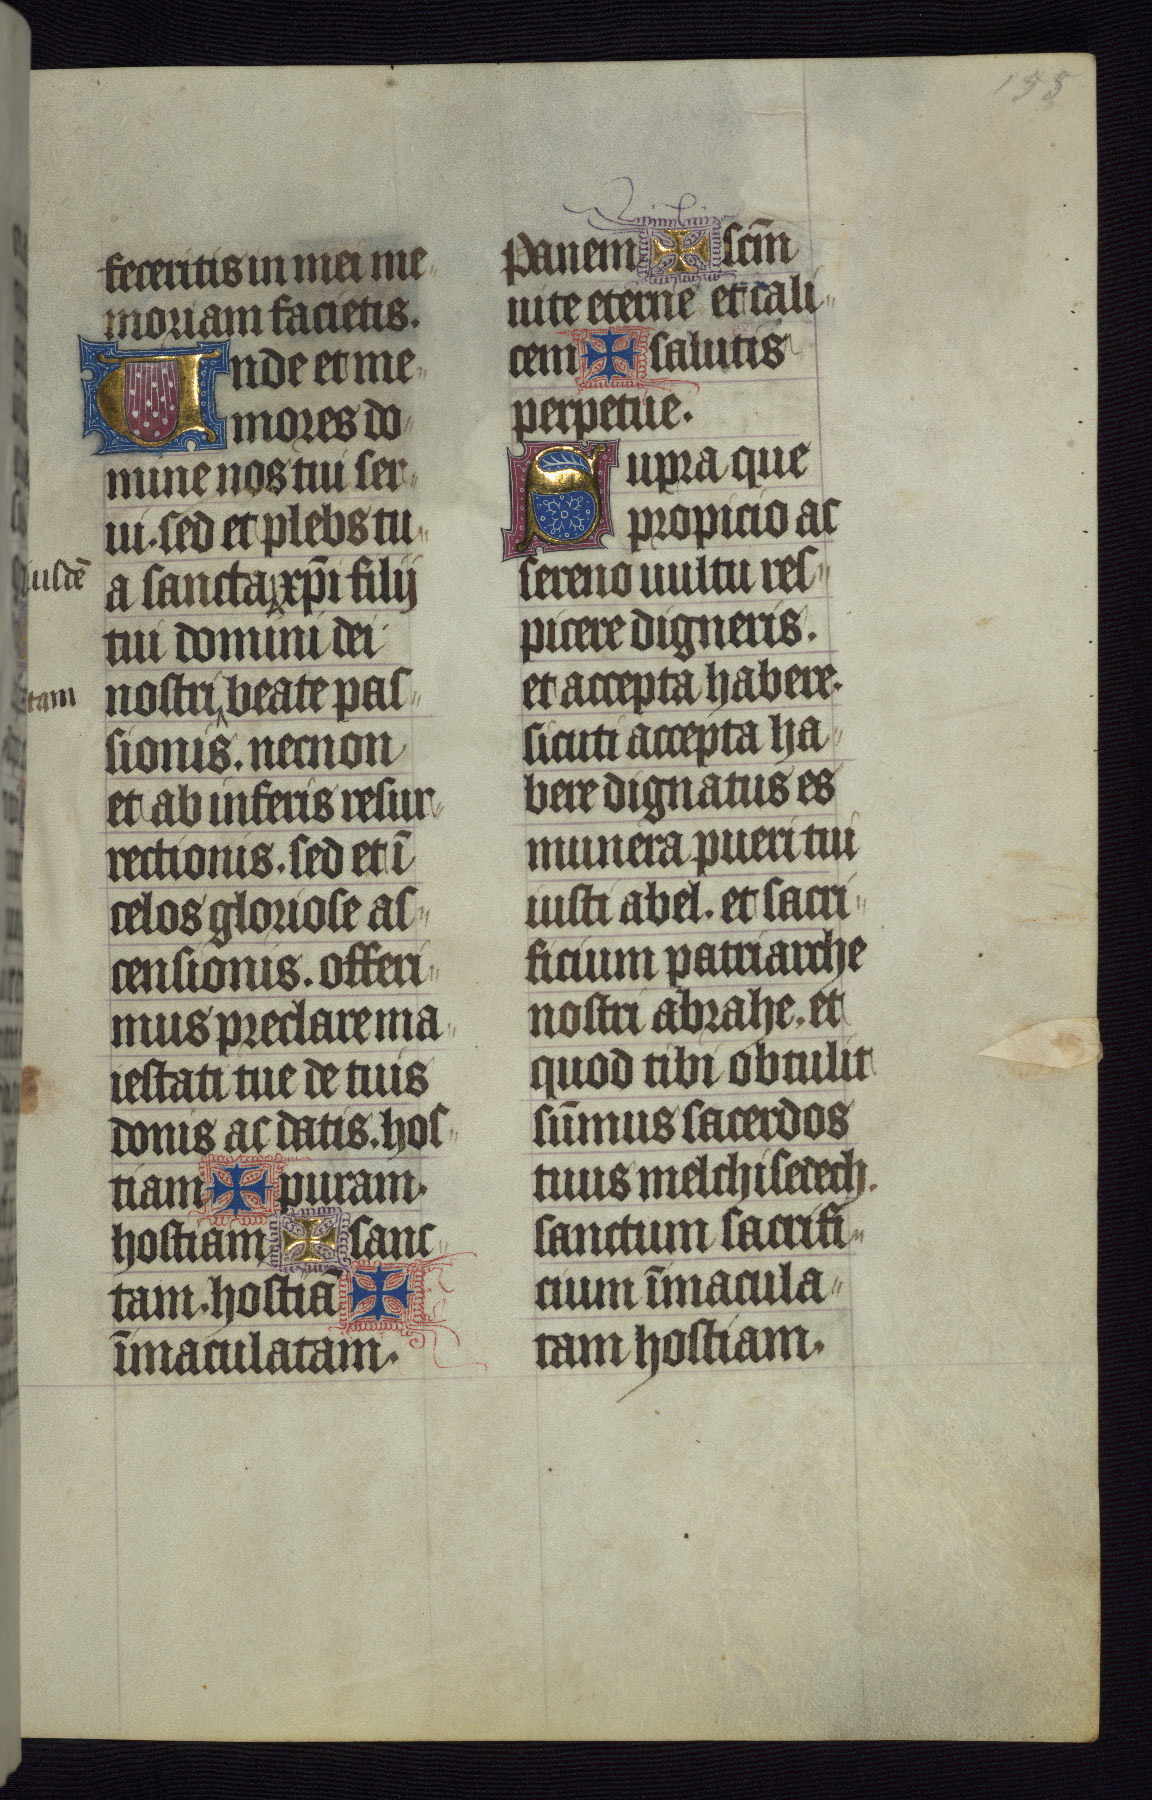 155
feceritis in mei me
moriam facietis.
Unde et me
mores do
mine nos tui ser
ui. sed et plebs tu
a sancta xp̄i filij
iusdē
tui domini dei
nostri beate pas
tam
sionis. necnon
et ab inferis resur
rectionis. sed et ī
celos gloriose as
censionis. offeri
mus preclare ma
iestati tue de tuis
donis ac datis. hos
tiam ✠ puram.
hostiam ✠ sanc
tam. hostiā ✠
īmaculatam.
Panem ✠ scm̄
uite eterne et cali
cem ✠ salutis
perpetue.
Supra que
propicio ac
sereno uultu res
picere digneris.
et accepta habere.
sicuti accepta ha
bere dignatus es
munera pueri tui
iusti abel. et sacri
ficium patriarche
nostri abrahe. et
quod tibi obtulit
sūmus sacerdos
tuus melchisedech.
sanctum sacrifi
cium īmacula
tam hostiam.